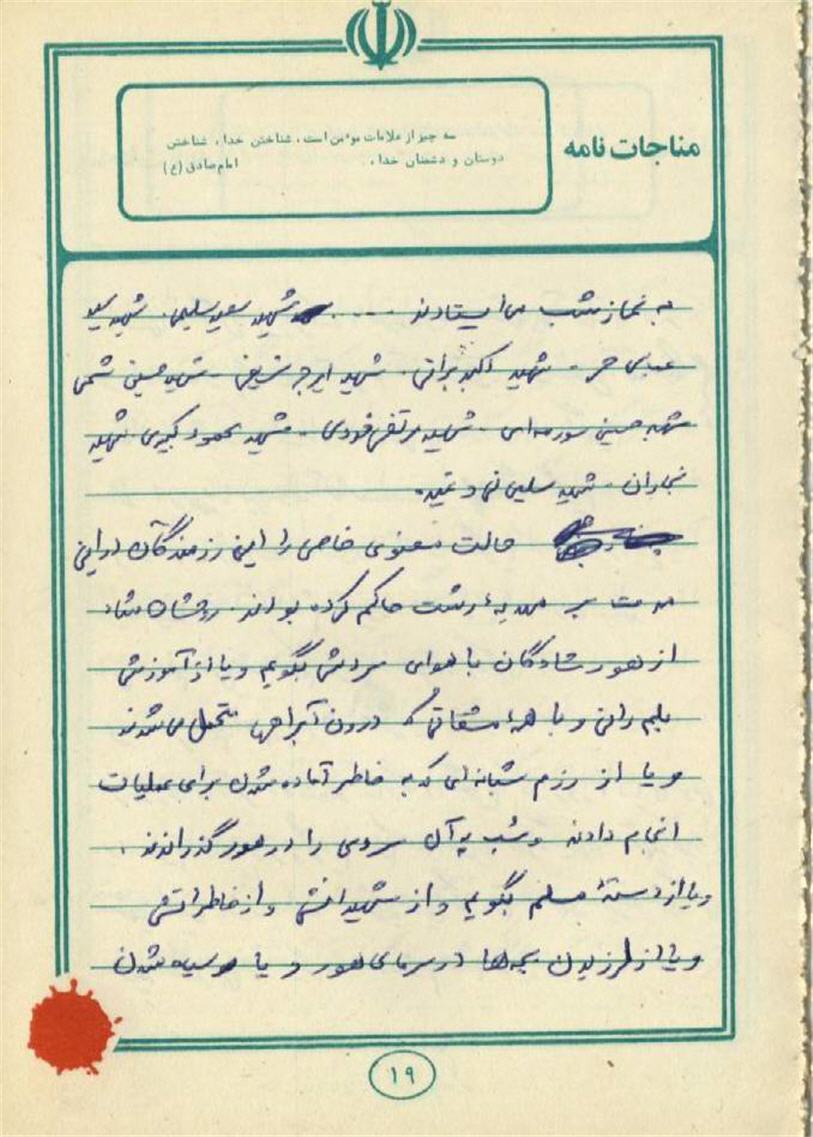 مناجات نامه
سه چیز از علامات موءمن است، شناختن خدا، شناختن
دوستان و دشمنان خدا، امام صادق (ع)
به نماز شب می ایستادند .... شهید سعید سلیمی. شهید سید
عباس حر - شهید اکبر براتی. شهید ایرج شریفی - شهید حسین شمس
شهید حسین سورمه ای - شهید مرتضی فودی - شهید محمود کبیری. شهید
نجاران - شهید سلیمانی و غیره.
حالت معنوی خاصی را این رزمندگان در این
مدت بر
از هور شادگان با هوای سردش بگویم و یا از آموزش
بلم رانی و با همه مشقاتی که درون آبراهها متحمل می شدند
و یا از رزم شبانه ای که به خاطر آماده شدن برای عملیات
انجام دادند و شب به آن سردی را در هور گذراندند.
و یا از دستهٔ مسلم بگویم و از شهیدانش و از خاطراتش
و یا از لرزیدن بچه ها در سرمای هور و یا سیاه شدن
۱۹